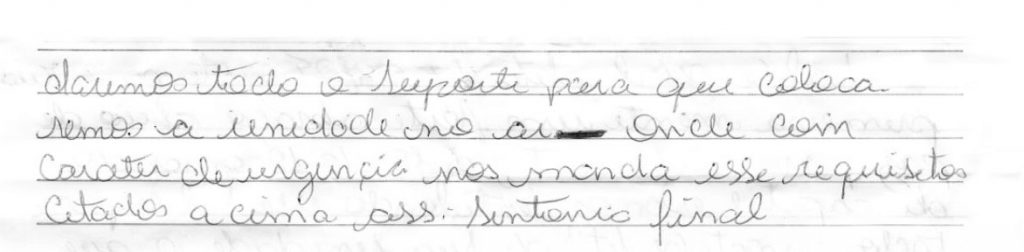 daremos todo o suporte para que coloca-
remos a unidade no ar Onde com
carater de urgençia nos manda esse requisitos
citados acima ass: Sintonia final